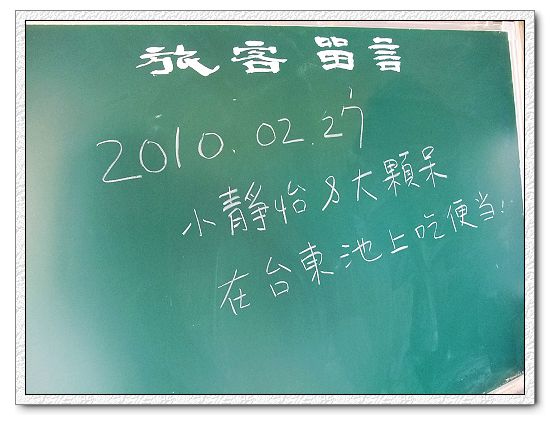 旅客留言
2010.02.27
小靜怡&大顆呆
在台東池上吃便当!